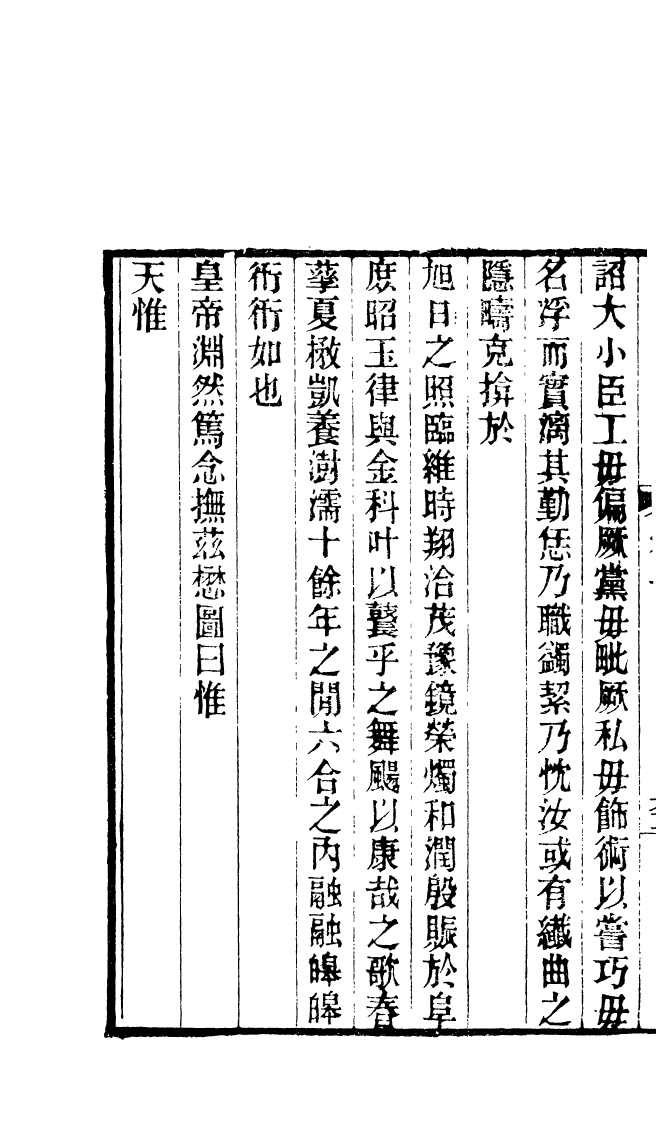 詔大小臣工毋偏厥黨毋毗厥私毋飾術以嘗巧毋
名浮而實漓其勤恁乃職蠲絜乃忱汝或有纖曲之
隱疇克揜於
旭日之照臨維時翔洽茂豫鏡榮燭和潤殷賑於阜
庶昭玉律與金科叶以鼚乎之舞颺以康哉之歌春
蕐夏檄凱養澍濡十餘年之閒六合之內融融皞皞
衎衎如也
皇帝淵然篤念撫茲懋圖曰惟
天惟